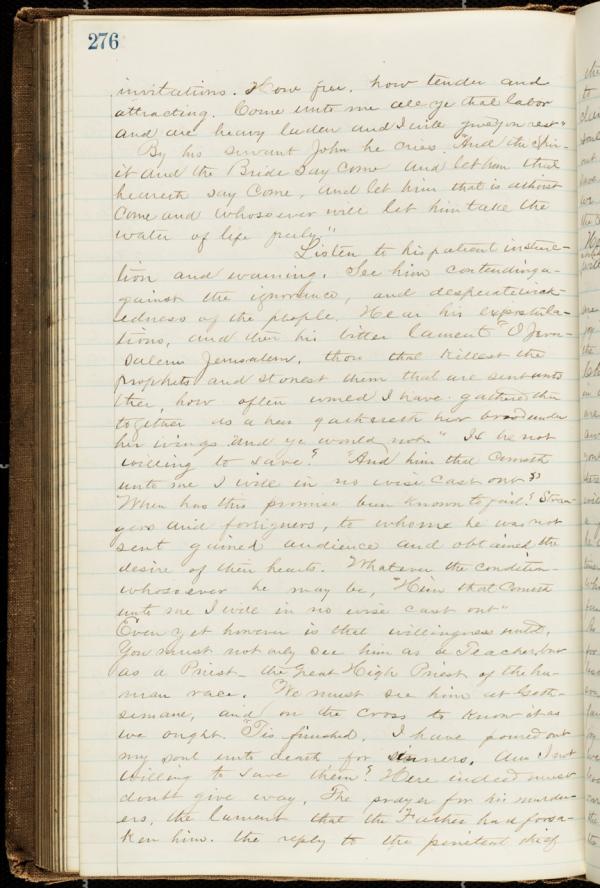 276
invitations. How free, how tender and
attracting. Come unto me all ye that labor
and are heavy laden and I will give you rest"
By his servant John he cries "And the Spir-
it and the Bride say Come and let him that
heareth say Come, and let him that is athirst
Come and whosoever will let him take the
water of life freely."
Listen to his patient instruc-
tion and warning. See him contending a-
gainst the ignorance, and desperate wick-
edness of the people. Hear his expostula-
tions, and then his bitter lament "O Jeru-
salem Jerusalem, thou that killest the
prophets and stonest them that are sent unto
thee, how often would I have gathered thee
together as a hen gathereth her brood under
her wings and ye would not." Is he not
willing to save? "And him that cometh
unto me I will in no wise cast out."
When has this promise been known to fail? Stran-
gers and foriegners, to whome he was not
sent gained audience and obtained the
desire of their hearts. Whatever the condition
whosoever he may be, "Him that Cometh
unto me I will in no wise cast out"
Even yet however is that willingness
You must not only see him as a Teacher, but
as a Priest - the Great High Priest of the hu-
man race. We must see him at Geth-
simane, and on the cross to know it as
we ought. 'Tis finished, I have poured out
my soul unto death for sinners. Am I not
willing to save them? Here indeed must
doubt give way. The prayer for his murder-
ers, the lament that the Father had forsa-
ken him. the reply to the penitent thief